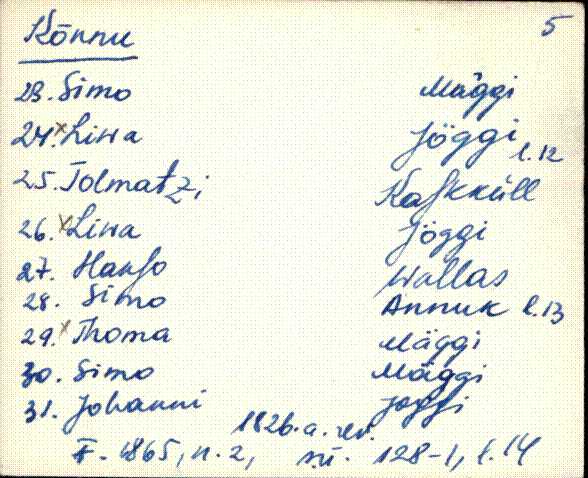 Kõnnu 5
23. Simo Mäggi
24. x Liwa Jöggi l.12
25. Tolmatzi Kaſkküll
26. x Liwa Jöggi
27. Hanſo Wallas
28. Simo Annuk l.13
29. x Thoma Mäggi
30. Simo Mäggi
31. Johanni Joggi
1826.a. rev.
F. 1865, n. 2, s.ü. 128-1, l.14